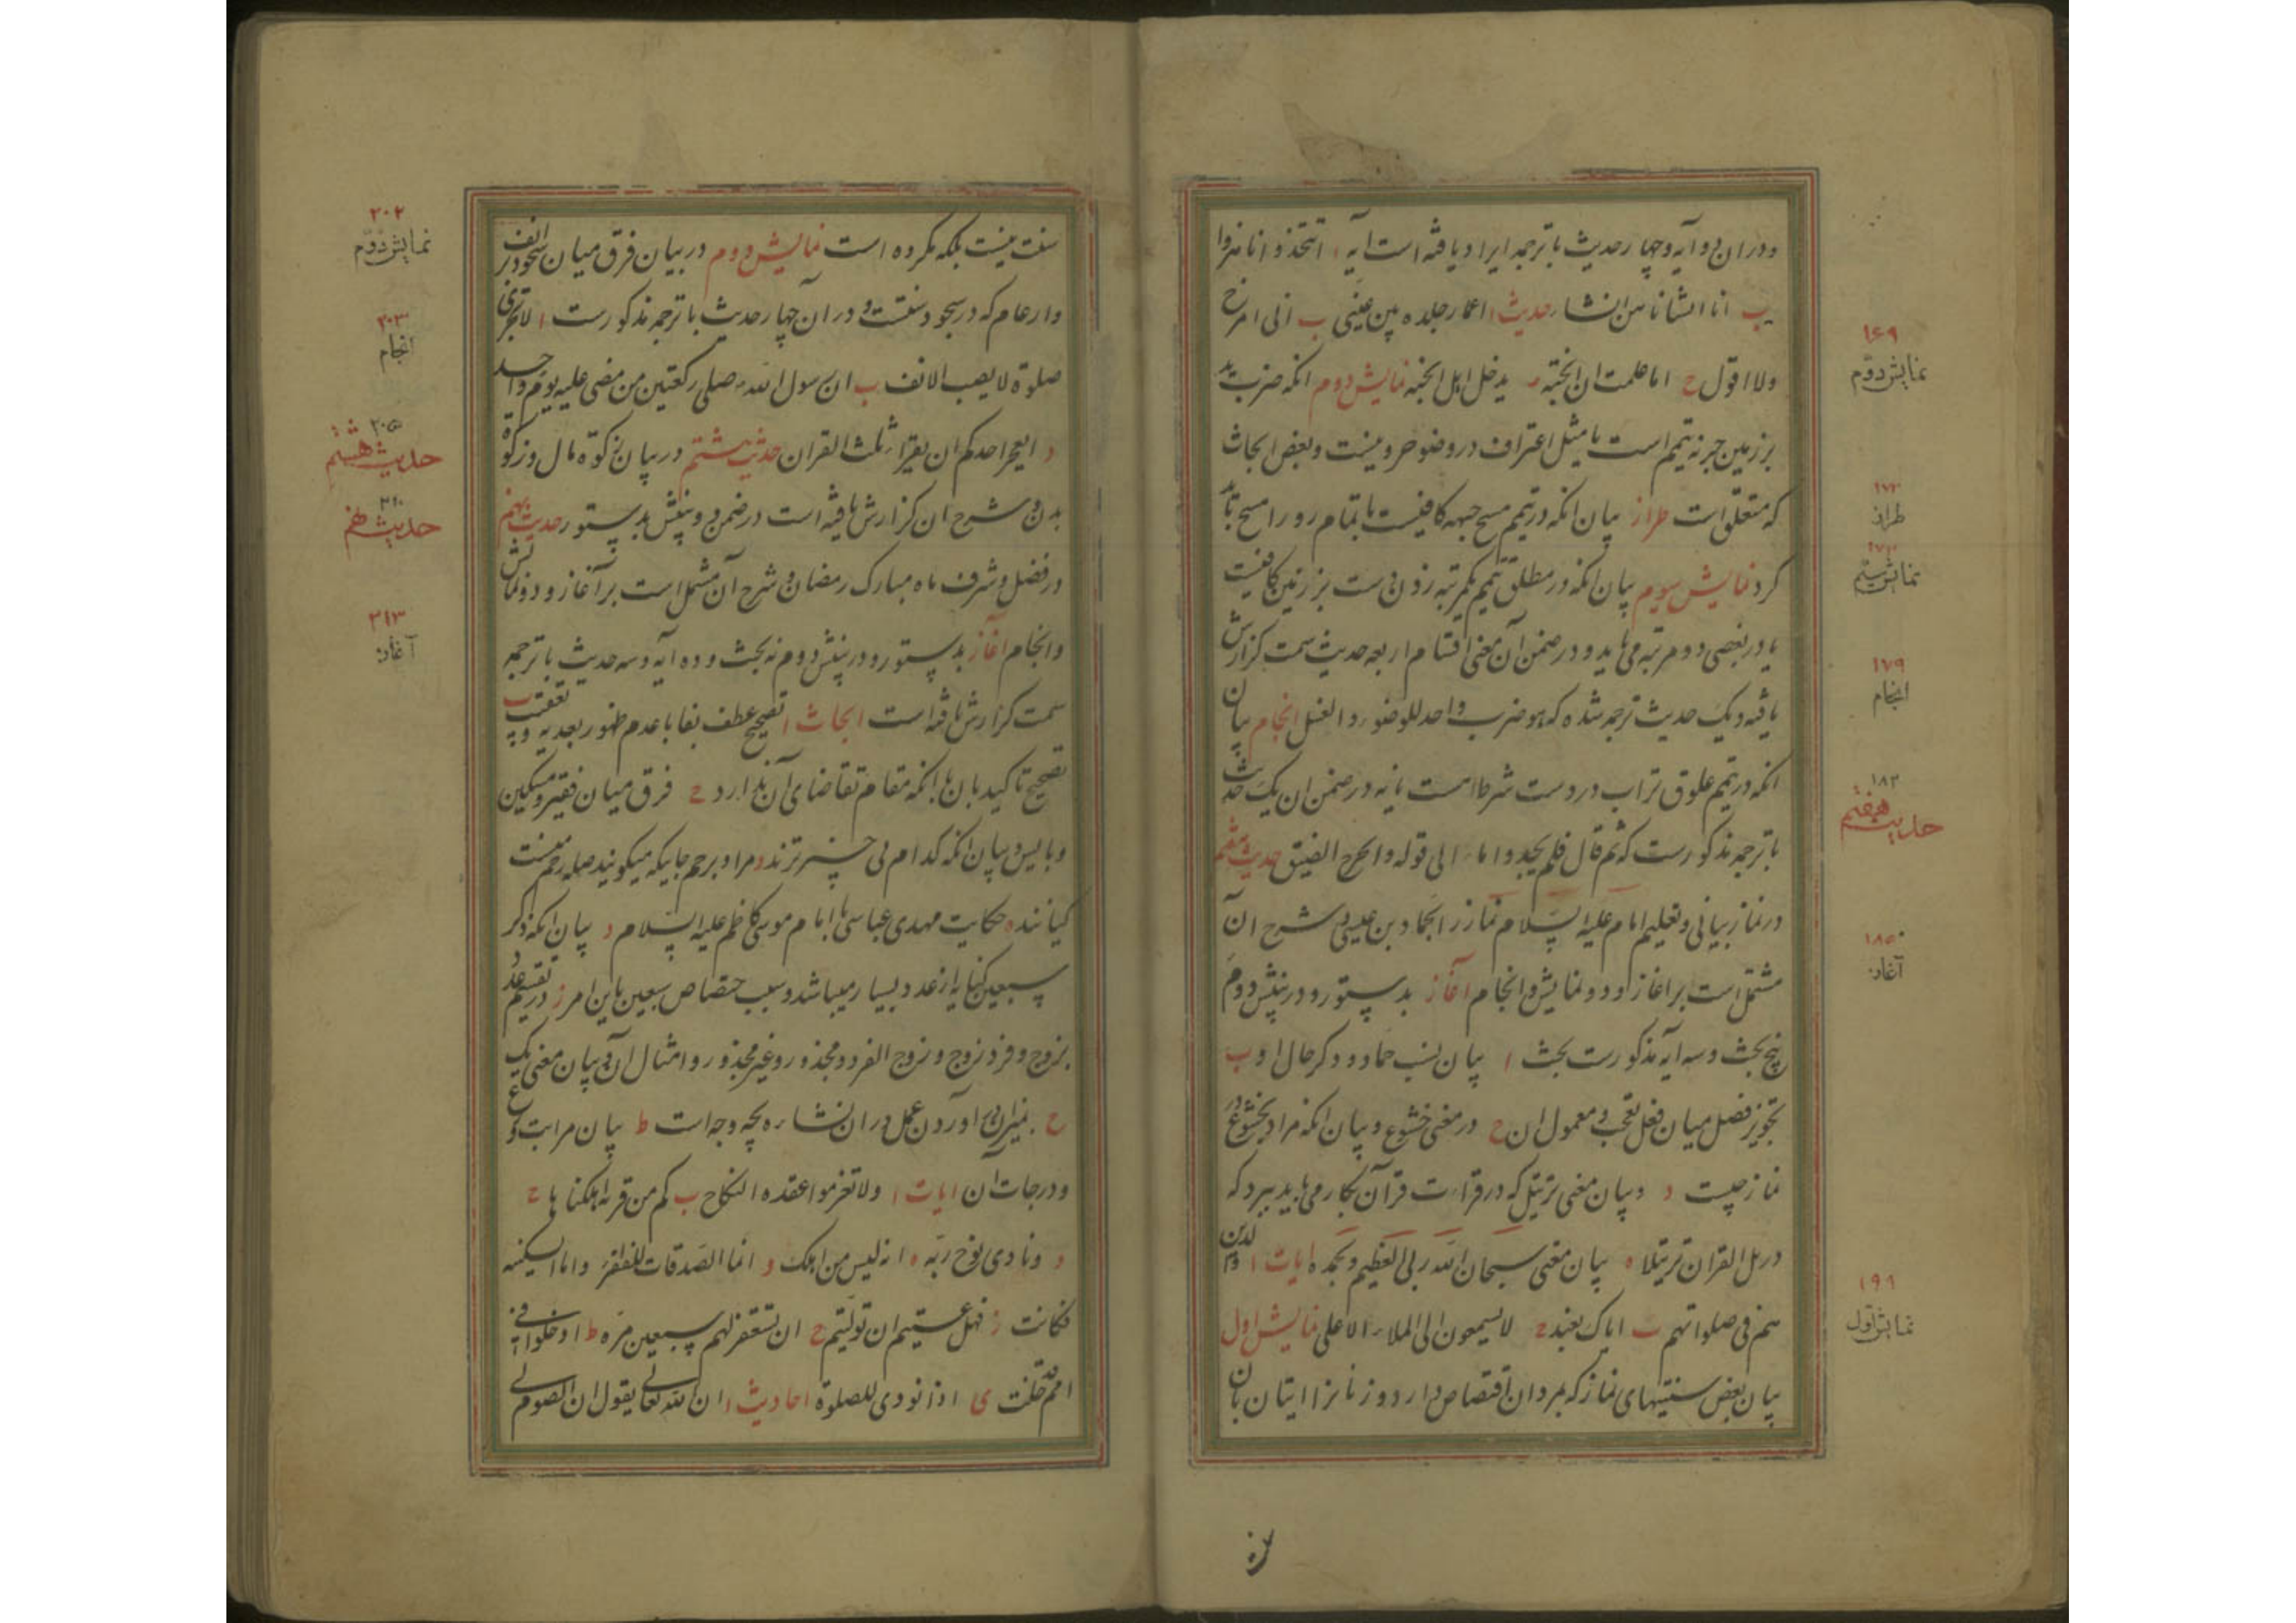 ودران دو آیه وچهار حدیث با ترجمه ایراد یافته است آیه ا اتتخذونا هزوا
ب انا انشاناهن انشاء حدیث ا عمار جلده بین عینی ب انی امزح
ولا اقول ح اما علمت ان الجنة یدخل اهل الجنة نمایش دوم انکه ضرب ید
بر زمین جزء تیمم است یا مثل اغتراف در وضو جزو نیست وبعض ابحاث
که متعلق است طراز بیان انکه در تیمم مسح جبهه کافیست یا تمام رو را مسح باید
کرد نمایش سیوم بیان انکه در مطلق تیمم یکمرتبه زدن دست بر زمین کافیست
یا در بعضی دو مرتبه می باید و در ضمن آن معنی اقسام اربعه حدیث سمت گزارش
یافته ویک حدیث ترجمه شده که هو ضرب واحد للوضوء والغسل انجام بیان
انکه در تیمم علوق تراب در دست شرط است یا نه در ضمن ان یک حدیث
با ترجمه مذکورست که ثم قال فلم یجدوا ماء الی قوله والحرج الضیق حدیث هفتم
در نماز بیانی وتعلیم امام علیه السلام نماز را بحماد بن عیسی وشرح ان
مشتمل است بر اغاز و دو نمایش وانجام آغاز بدستور و در بینش دوم
پنج بحث وسه آیه مذکورست بحث ا بیان نسب حماد و ذکر حال او ب
تجویز فصل میان فعل تعجب و معمول ان ح در معنی خشوع وبیان انکه مراد بخشوع در
نماز چیست د وبیان معنی ترتیل که در قراءت قرآن بکار می باید برد که
ورتل القران ترتیلا ه بیان معنی سبحان الله ربی العظیم وبحمده ایات ا الذین
هم فی صلواتهم ب ایاک نعبد ح لا یسمعون الی الملاء الاعلی نمایش اول
بیان بعض سنتیهای نماز که بمردان اقتصاص دارد و زنانرا اتیان بان
۱۶۹
نمایش دوم
طراز
نمایش سیم
۱۷۹
انجام
۱۸۳
حدیث هفتم
۱۸۵
آغاز
نمایش اول
سنت نیست بلکه مکروه است نمایش دوم در بیان فرق میان سجود بر انف
وارغام که در سجود سنتست و در آن چهار حدیث با ترجمه مذکورست ا لا تجزی
صلوة لا یصیب الانف ب ان رسول الله صلی رکعتین من مضی علیه یوم واحد
د ایعجز احدکم ان یقرا ثلث القران حدیث هشتم در بیان زکوة مال وزکوة
بدن وشرح ان گزارش یافته است در ضمن دو بینش بدستور حدیث نهم
در فضل وشرف ماه مبارک رمضان وشرح آن مشتمل است بر آغاز و دو نمایش
وانجام آغاز بدستور و در بینش دوم نه بحث و ده ایه وسه حدیث با ترجمه
سمت گزارش یافته است ابحاث ا تصحیح عطف بفا با عدم ظهور بعدیه وتعقیب ب
تصحیح تاکید بان با انکه مقام تقاضای آن ندارد ح فرق میان فقیر ومسکین
وبایس وبیان انکه کدام بی چیزترند د مراد برحم جاییکه میکویند صله رحم نیست
کیانند ه حکایت مهدی عباسی با امام موسی کاظم علیه السلام و بیان انکه ذکر
سبعین کنایه از عدد بسیار میباشد وسبب اختصاص سبعین باین امر ز در تقسیم عدد
بزوج وفرد و زوج و زوج الفرد و مجذور وغیر مجذور وامثال آن وبیان معنی یک
ح بمیزان در اوردن عمل در ان نشاء بچه وجه است ط بیان مراتب ورع
ودرجات آن ایات ا ولا تعزموا عقدة النکاح ب کم من قریة اهلکناها ح
د ونادی نوح ربه ه انه لیس من اهلک و انما الصدقات للفقراء واما السفینة
فکانت ز فهل عسیتم ان تولیتم ح ان تستغفر لهم سبعین مرة ط ادخلوا فی
امم قد خلت ی اذا نودی للصلوة احادیث ا ان الله تعالی یقول ان الصوم لی
۲۰۲
نمایش دوم
۲۰۳
انجام
۲۰۵
حدیث هشتم
۲۱۰
حدیث نهم
آغاز